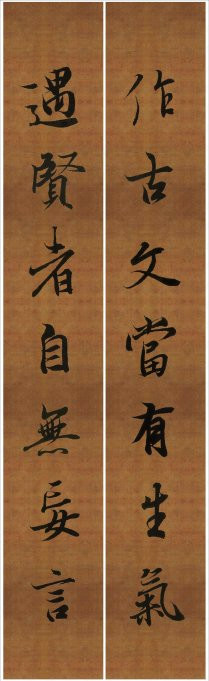 作古文當有生氣
遇賢者自無妄言